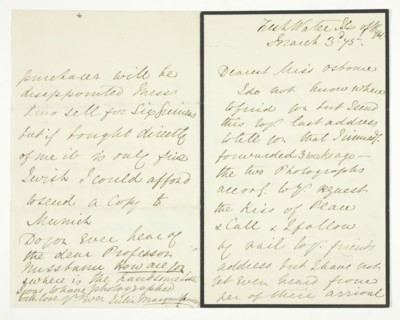 Fresh Water Isle of W
March 3d 75.
Dearest Miss Osborne
I do not know where
to find you but I send
this to yr last address
to tell you that I immedy
forwarded 3 weeks ago —
the two Photographs
accordg to yr request
the Kiss of Peace
& Call & I follow
by rail to yr friends
address but I have not
yet even heard from
her of their arrival
purchaser will be
disappointed
two sell for Six Guineas
but if bought directly
of me it is only five
I wish I could afford
to send a Copy to
Munich
Do you ever hear of
the dear Professor
How are you
& where is the handsome
to have photographed
with love yr ever